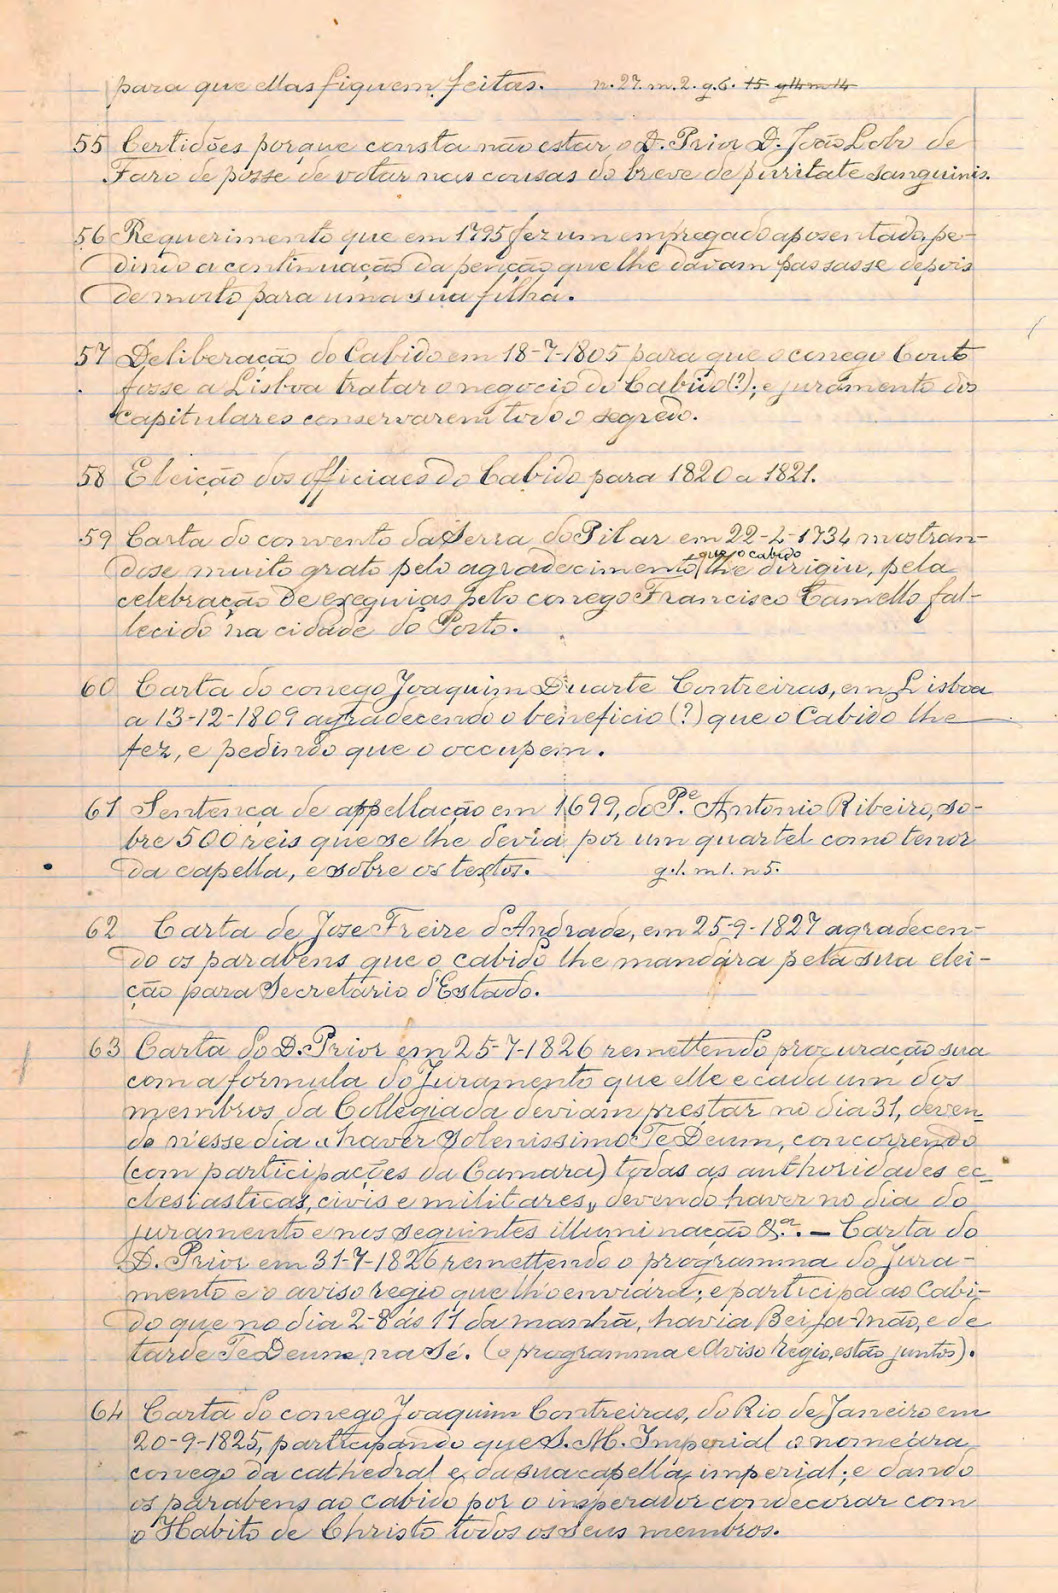 para que ellas fiquem feitas. n. 27. m. 2. g. 6. 15 g14 m 14
55 Certidões porque consta não estar o D. Prior D. João Lobo de
Faro de posse de votar nas cousas do breve de puritate sanguinis.
56 Requerimento que em 1795 fez um empregado aposentado, pe-
dindo a continuação da penção que lhe davam passasse depois
de morto para uma sua filha.
57 Deliberação do Cabido em 18-7-1805 para que o conego Couto
fosse a Lisboa tratar o negocio do Cabido (?); e juramento dos
capitulares conservarem todo o segredo.
58 Eleição dos officiaes do Cabido para 1820 a 1821.
59 Carta do convento da Serra do Pilar em 22-2-1734 mostran-
dose muito grato pelo agradecimento que o cabido lhe dirigiu, pela
celebração de exequias pelo conego Francisco Camello fal-
lecido na cidade do Porto.
60 Carta do conego Joaquim Duarte Contreiras, em Lisboa
a 13-12-1809 agradecendo o beneficio (?) que o Cabido lhe
fez, e pedindo que o occupem.
61 Sentença de appellação em 1699, do P.e Antonio Ribeiro, so-
bre 500 reis que se lhe devia por um quartel como tenor
da capella, e sobre os textos. g. 1. m 1. n 5.
62 Carta de Jose Freire d'Andrade, em 25-9-1827 agradecen-
do os parabens que o cabido lhe mandára pela sua elei-
ção para Secretario d'Estado.
63 Carta do D. Prior em 25-7-1826 remettendo procuração sua
com a formula do Juramento que elle e cada um dos
membros da Collegiada deviam prestar no dia 31, deven-
do n'esse dia "haver Solenissimo Te Deum, concorrendo
(com participações da Camara) todas as authoridades ec-
clesiasticas, civis e militares", devendo haver no dia do
juramento e nos seguintes illuminação &.a. — Carta do
D. Prior em 31-7-1826 remettendo o programma do Jura-
mento e o aviso regio que lh'o enviára; e participa ao Cabi-
do que no dia 2-8 ás 11 da manhã, havia Beija-Mão, e de
tarde Te Deum, na Sé. (o programma e Aviso Regio, estão juntos).
64 Carta do conego Joaquim Contreiras, do Rio de Janeiro em
20-9-1825, participando que S. M. Imperial o nomeára
conego da cathedral e da sua capella imperial; e dando
os parabens ao cabido por o imperador condecorar com
o Habito de Christo todos os seus membros.